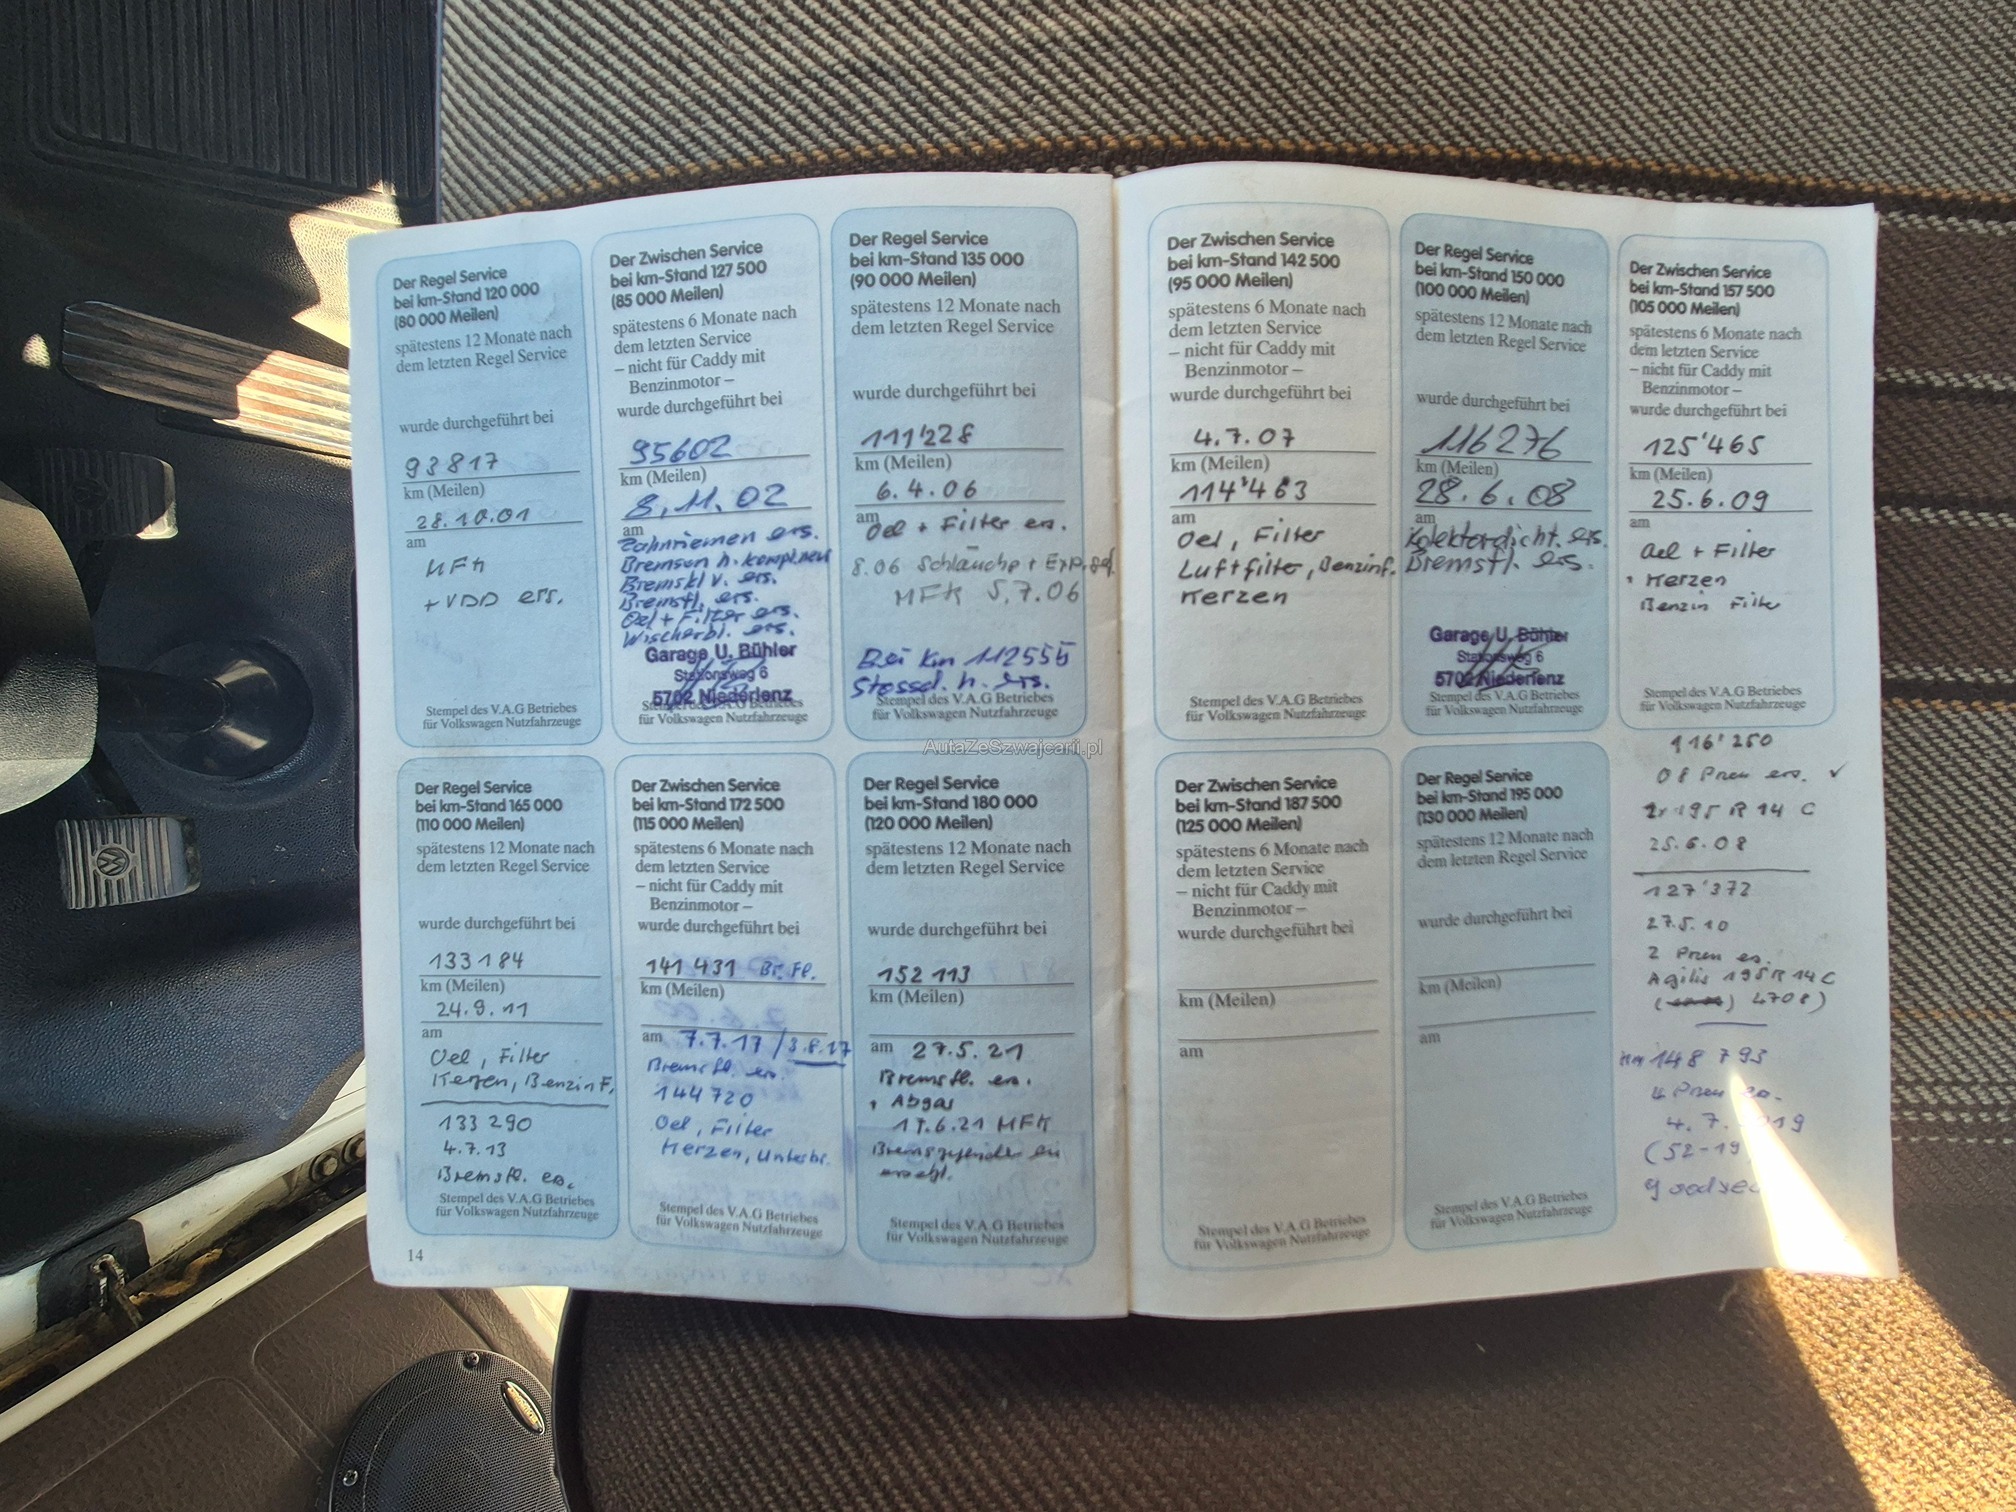 Der Regel Service
bei km-Stand 120 000
(80 000 Meilen)
spätestens 12 Monate nach
dem letzten Regel Service
wurde durchgeführt bei
93817
km (Meilen)
28.10.01
am
MFK
+ VDD ers.
Stempel des V.A.G Betriebes
für Volkswagen Nutzfahrzeuge
Der Zwischen Service
bei km-Stand 127 500
(85 000 Meilen)
spätestens 6 Monate nach
dem letzten Service
– nicht für Caddy mit
Benzinmotor –
wurde durchgeführt bei
95602
km (Meilen)
8.11.02
am
Zahnriemen ers.
Bremsen h. kompl. neu
Bremskl v. ers.
Bremsfl. ers.
Oel + Filter ers.
Wischerbl. ers.
Garage U. Bühler
Stationsweg 6
5702 Niederlenz
Stempel des V.A.G Betriebes
für Volkswagen Nutzfahrzeuge
Der Regel Service
bei km-Stand 135 000
(90 000 Meilen)
spätestens 12 Monate nach
dem letzten Regel Service
wurde durchgeführt bei
111'228
km (Meilen)
6.4.06
am
Oel + Filter ers.
8.06 Schläuche + Exp.gef.
MFK 5.7.06
Bei km 112555
Stossd. h. ers.
Stempel des V.A.G Betriebes
für Volkswagen Nutzfahrzeuge
Der Zwischen Service
bei km-Stand 142 500
(95 000 Meilen)
spätestens 6 Monate nach
dem letzten Service
– nicht für Caddy mit
Benzinmotor –
wurde durchgeführt bei
4.7.07
km (Meilen)
114'463
am
Oel, Filter
Luftfilter, Benzinf.
Kerzen
Stempel des V.A.G Betriebes
für Volkswagen Nutzfahrzeuge
Der Regel Service
bei km-Stand 150 000
(100 000 Meilen)
spätestens 12 Monate nach
dem letzten Regel Service
wurde durchgeführt bei
116276
km (Meilen)
28.6.08
am
Kolektordicht. ers.
Bremsfl. ers.
Garage U. Bühler
Stationsweg 6
5702 Niederlenz
Stempel des V.A.G Betriebes
für Volkswagen Nutzfahrzeuge
Der Zwischen Service
bei km-Stand 157 500
(105 000 Meilen)
spätestens 6 Monate nach
dem letzten Service
– nicht für Caddy mit
Benzinmotor –
wurde durchgeführt bei
125'465
km (Meilen)
25.6.09
am
Oel + Filter
Kerzen
Benzin Filter
Stempel des V.A.G Betriebes
für Volkswagen Nutzfahrzeuge
AutaZeSzwajcarii.pl
Der Regel Service
bei km-Stand 165 000
(110 000 Meilen)
spätestens 12 Monate nach
dem letzten Regel Service
wurde durchgeführt bei
133184
km (Meilen)
24.9.11
am
Oel, Filter
Kerzen, Benzin F.
133 290
4.7.13
Bremsfl. ers.
Stempel des V.A.G Betriebes
für Volkswagen Nutzfahrzeuge
14
Der Zwischen Service
bei km-Stand 172 500
(115 000 Meilen)
spätestens 6 Monate nach
dem letzten Service
– nicht für Caddy mit
Benzinmotor –
wurde durchgeführt bei
141 431 Br. Fl.
km (Meilen)
am 7.7.17 / 3.8.17
Bremsfl. ers.
144720
Oel, Filter
Kerzen, Unterbr.
Stempel des V.A.G Betriebes
für Volkswagen Nutzfahrzeuge
Der Regel Service
bei km-Stand 180 000
(120 000 Meilen)
spätestens 12 Monate nach
dem letzten Regel Service
wurde durchgeführt bei
152 113
km (Meilen)
am 27.5.21
Bremsfl. ers.
+ Abgas
17.6.21 MFK
Stempel des V.A.G Betriebes
für Volkswagen Nutzfahrzeuge
Der Zwischen Service
bei km-Stand 187 500
(125 000 Meilen)
spätestens 6 Monate nach
dem letzten Service
– nicht für Caddy mit
Benzinmotor –
wurde durchgeführt bei
km (Meilen)
am
Stempel des V.A.G Betriebes
für Volkswagen Nutzfahrzeuge
Der Regel Service
bei km-Stand 195 000
(130 000 Meilen)
spätestens 12 Monate nach
dem letzten Regel Service
wurde durchgeführt bei
km (Meilen)
am
Stempel des V.A.G Betriebes
für Volkswagen Nutzfahrzeuge
116'250
08 Pneu ers. ✓
2x 195 R 14 C
25.6.08
127'372
27.5.10
2 Pneu ers.
Agilis 195 R 14 C
4708)
km 148 793
4 Pneu ers.
4.7.2019
(52-19